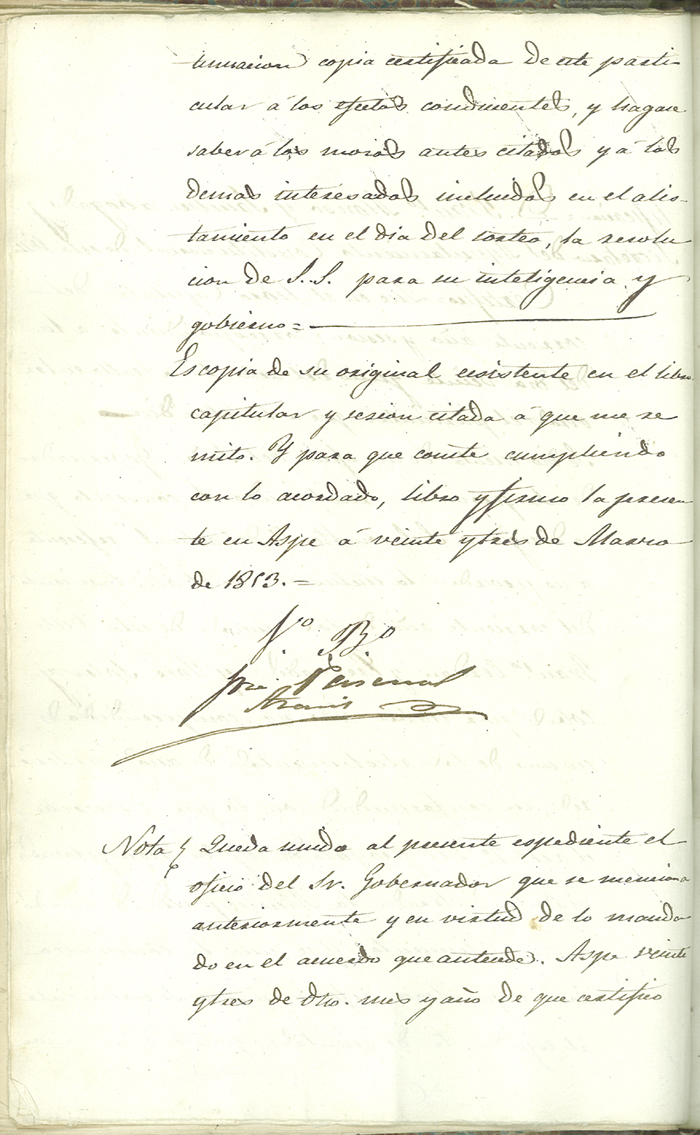 tinuacion copia certificada de este parti-
cular á los efectos conducentes, y hagase
saber á los mozos antes citados y á los
demas interesados incluidos en el alis-
tamiento en el dia del sorteo, la resolu-
cion de S.S. para su inteligencia y
gobierno =
Es copia de su original ecsistente en el libro
capitular y sesion citada á que me re
mito. Y para que conste cumpliendo
con lo acordado, libro y firmo la presen-
te en Aspe á veinte y tres de Marzo
de 1853. =
V.º B.º
Nota Queda unido al presente espediente el
oficio del Sr. Gobernador que se menciona
anteriormente y en virtud de lo manda
do en el acuerdo que antecede. Aspe veinte
y tres de dho. mes y año de que certifico